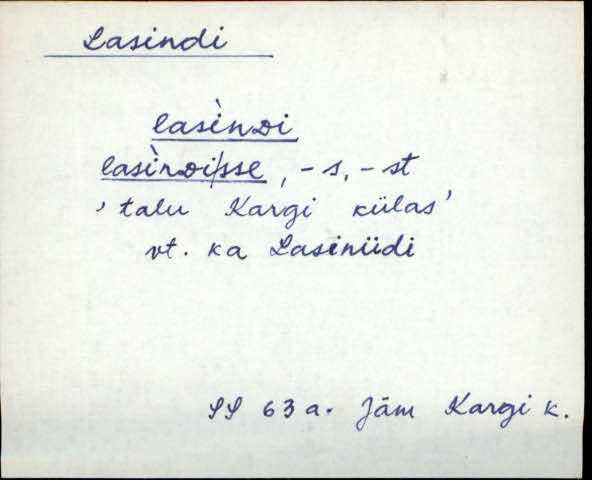 Lasindi
lasìnDi
lasìnDi/sse, -s, -st
'talu Kargi külas'
vt. ka Lasiniidi
SS 63a. Jäm Kargi k.